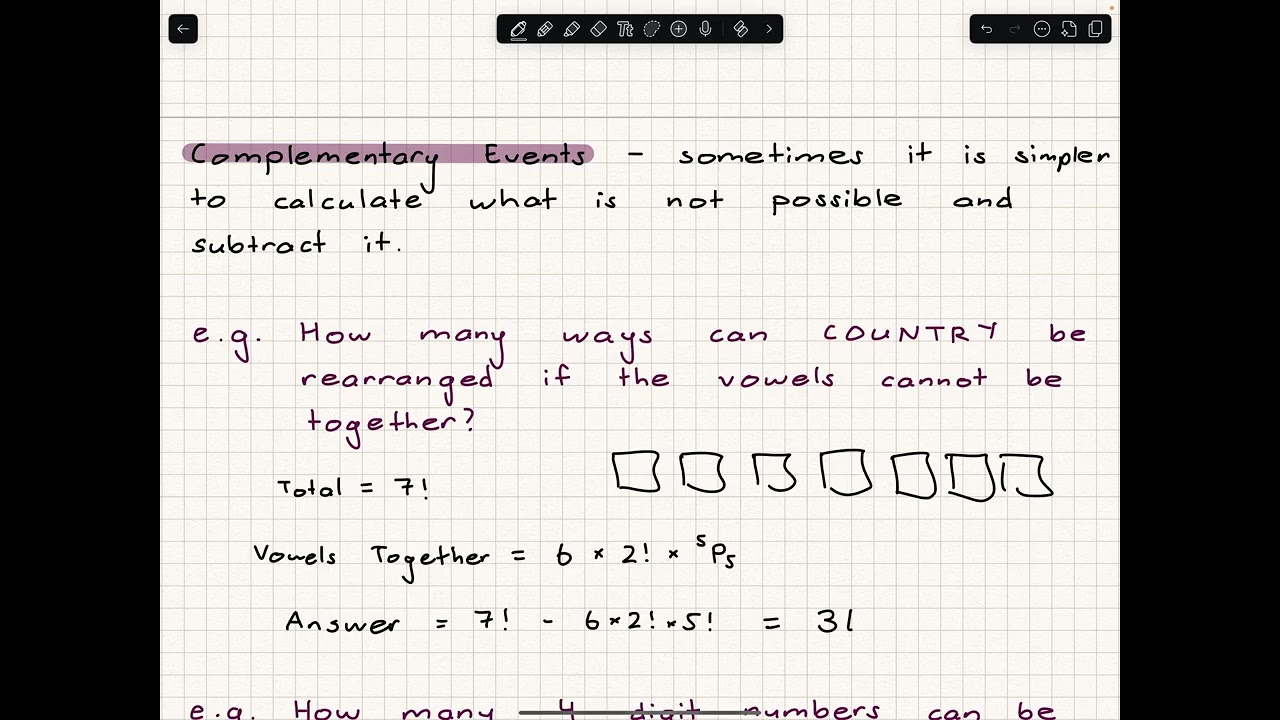 Complementary Events - sometimes it is simpler
to calculate what is not possible and
subtract it.
e.g. How many ways can COUNTRY be
rearranged if the vowels cannot be
together?
Total = 7!
Vowels Together = 6 × 2! × ⁵P₅
Answer = 7! - 6×2!×5! = 31
e.g. How many 4 digit numbers can be